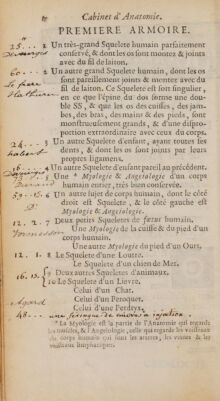 Cabinet d'Anatomie.
PREMIERE ARMOIRE.
Un très-grand Squelete humain parfaitement
conservé, & dont les os sont montés & joints
avec du fil de laiton.
60. Un autre grand Squelete humain, dont les os
sont pareillement joints & montés avec du
fil de laiton. Ce Squelete est fort singulier,
en ce que l'épine du dos forme une dou-
ble SS, & que les os des cuisses, des jam-
bes, des bras, des mains & des pieds, sont
monstrueusement grands, & d'une dispro-
portion extraordinaire avec ceux du corps.
24. Un autre Squelete d'enfant, ayant toutes ses
dents, & dont les os sont joints par leurs
propres ligamens.
Un autre Squelete d'enfant pareil au précédent.
Une * Myologie & Angeiologie d'un corps
humain entier, très bien conservée.
6 Un autre sujet de corps humain, dont le côté
droit est Squelete, & le côté gauche est
Myologie & Angeiologie.
12. 2. 7 Deux petits Squeletes de fœtus humain.
Une Myologie de la cuisse & du pied d'un
corps humain.
Une autre Myologie du pied d'un Ours.
12. 1. 8 Le Squelete d'une Loutre.
Le Squelete d'un chien de Mer.
16. 9 Deux autres Squeletes d'animaux.
10 Le Squelete d'un Lievre.
Celui d'un Chat.
Celui d'un Peroquet.
Celui d'une Perdrix.
48 une seringue
* La Myologie est la partie de l'Anatomie qui regarde
les muscles, & l'Angeiologie, celle qui regarde les vaisseaux
du corps humain qui sont les arteres, les veines & les
vaisseaux limphatiques.